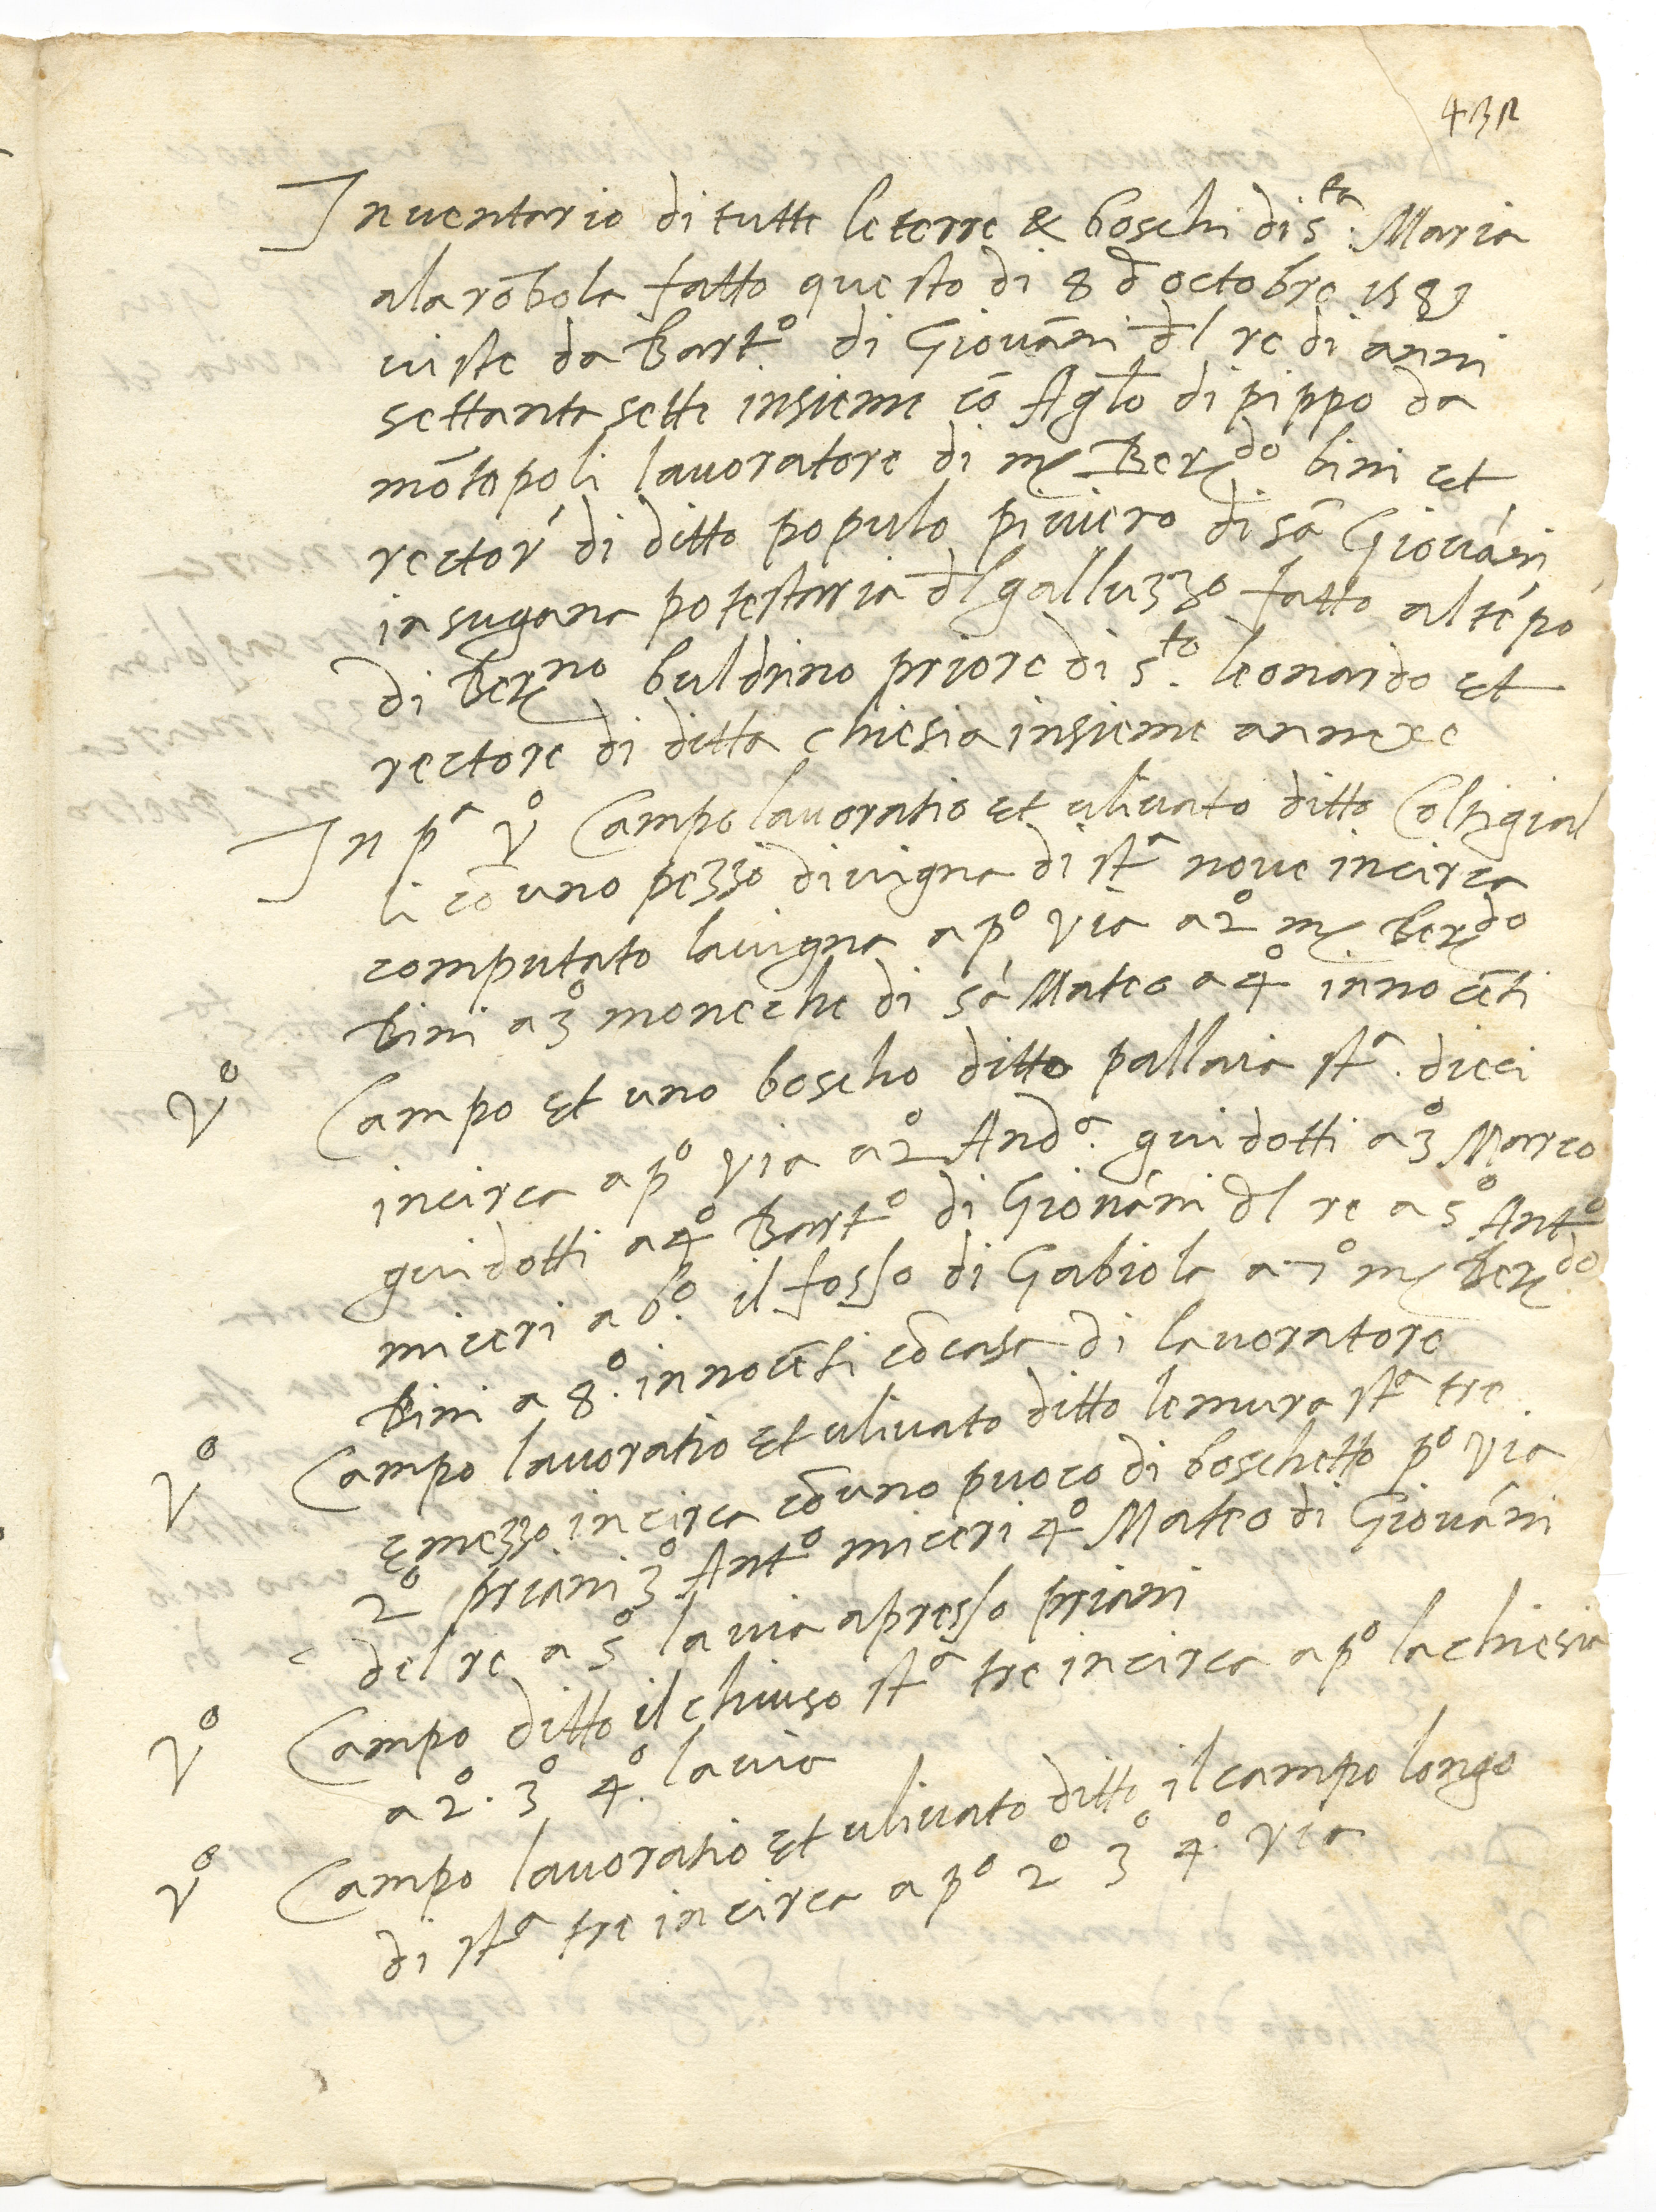 43r
Inventario di tutte le terre & boschi di S.ta Maria
ala rōbola fatto questo di 8 d octobre 1583
viste da Bart.o di Giovāni dl re di anni
settanta sette insieme cō Agl̄o di pippo da
mōtopoli lavoratore di m Ber.do bini et
rector' di ditto populo piviero di sā Giovāni
in sugana potestaria dl galluzzo fatto al tēpo
di Ber.no buldrino priore di s.to leonardo et
rectore di ditta chiesia insieme annexe
In p.a V.o Campo lavoratio et ulivato ditto Coltigial
li cō uno pezzo di vigna di st.a nove incirca
computato la vigna a p.o via a 2.o m Ber.do
Bini a 3.o moneche di sā Mateo a 4.o innocēti
V.o Campo et uno boscho ditto pallaia st.a dieci
incirca a p.o via a 2.o And.a guidotti a 3.o Marco
guidotti a 4.o Bart.o di Giovāni dl re a 5.o Ant.o
miceri a 6.o il fosso di Gabiola a 7.o m Ber.do
Bini a 8.o innocēti cō casa di lavoratore
V.o Campo lavoratio et ulivato ditto le mura st.a tre
e mezzo incirca cō uno puoco di boschetto p.o via
2.o priani 3.o Ant.o miceri 4.o Mateo di Giovāni
del re a 5.o la via apresso priani
V.o Campo ditto il chiuso st.a tre incirca a p.o la chiesia
a 2.o 3.o 4.o la via
V.o Campo lavoratio et ulivato ditto il campo longo
di st.a tre incirca a p.o 2.o 3.o 4.o via